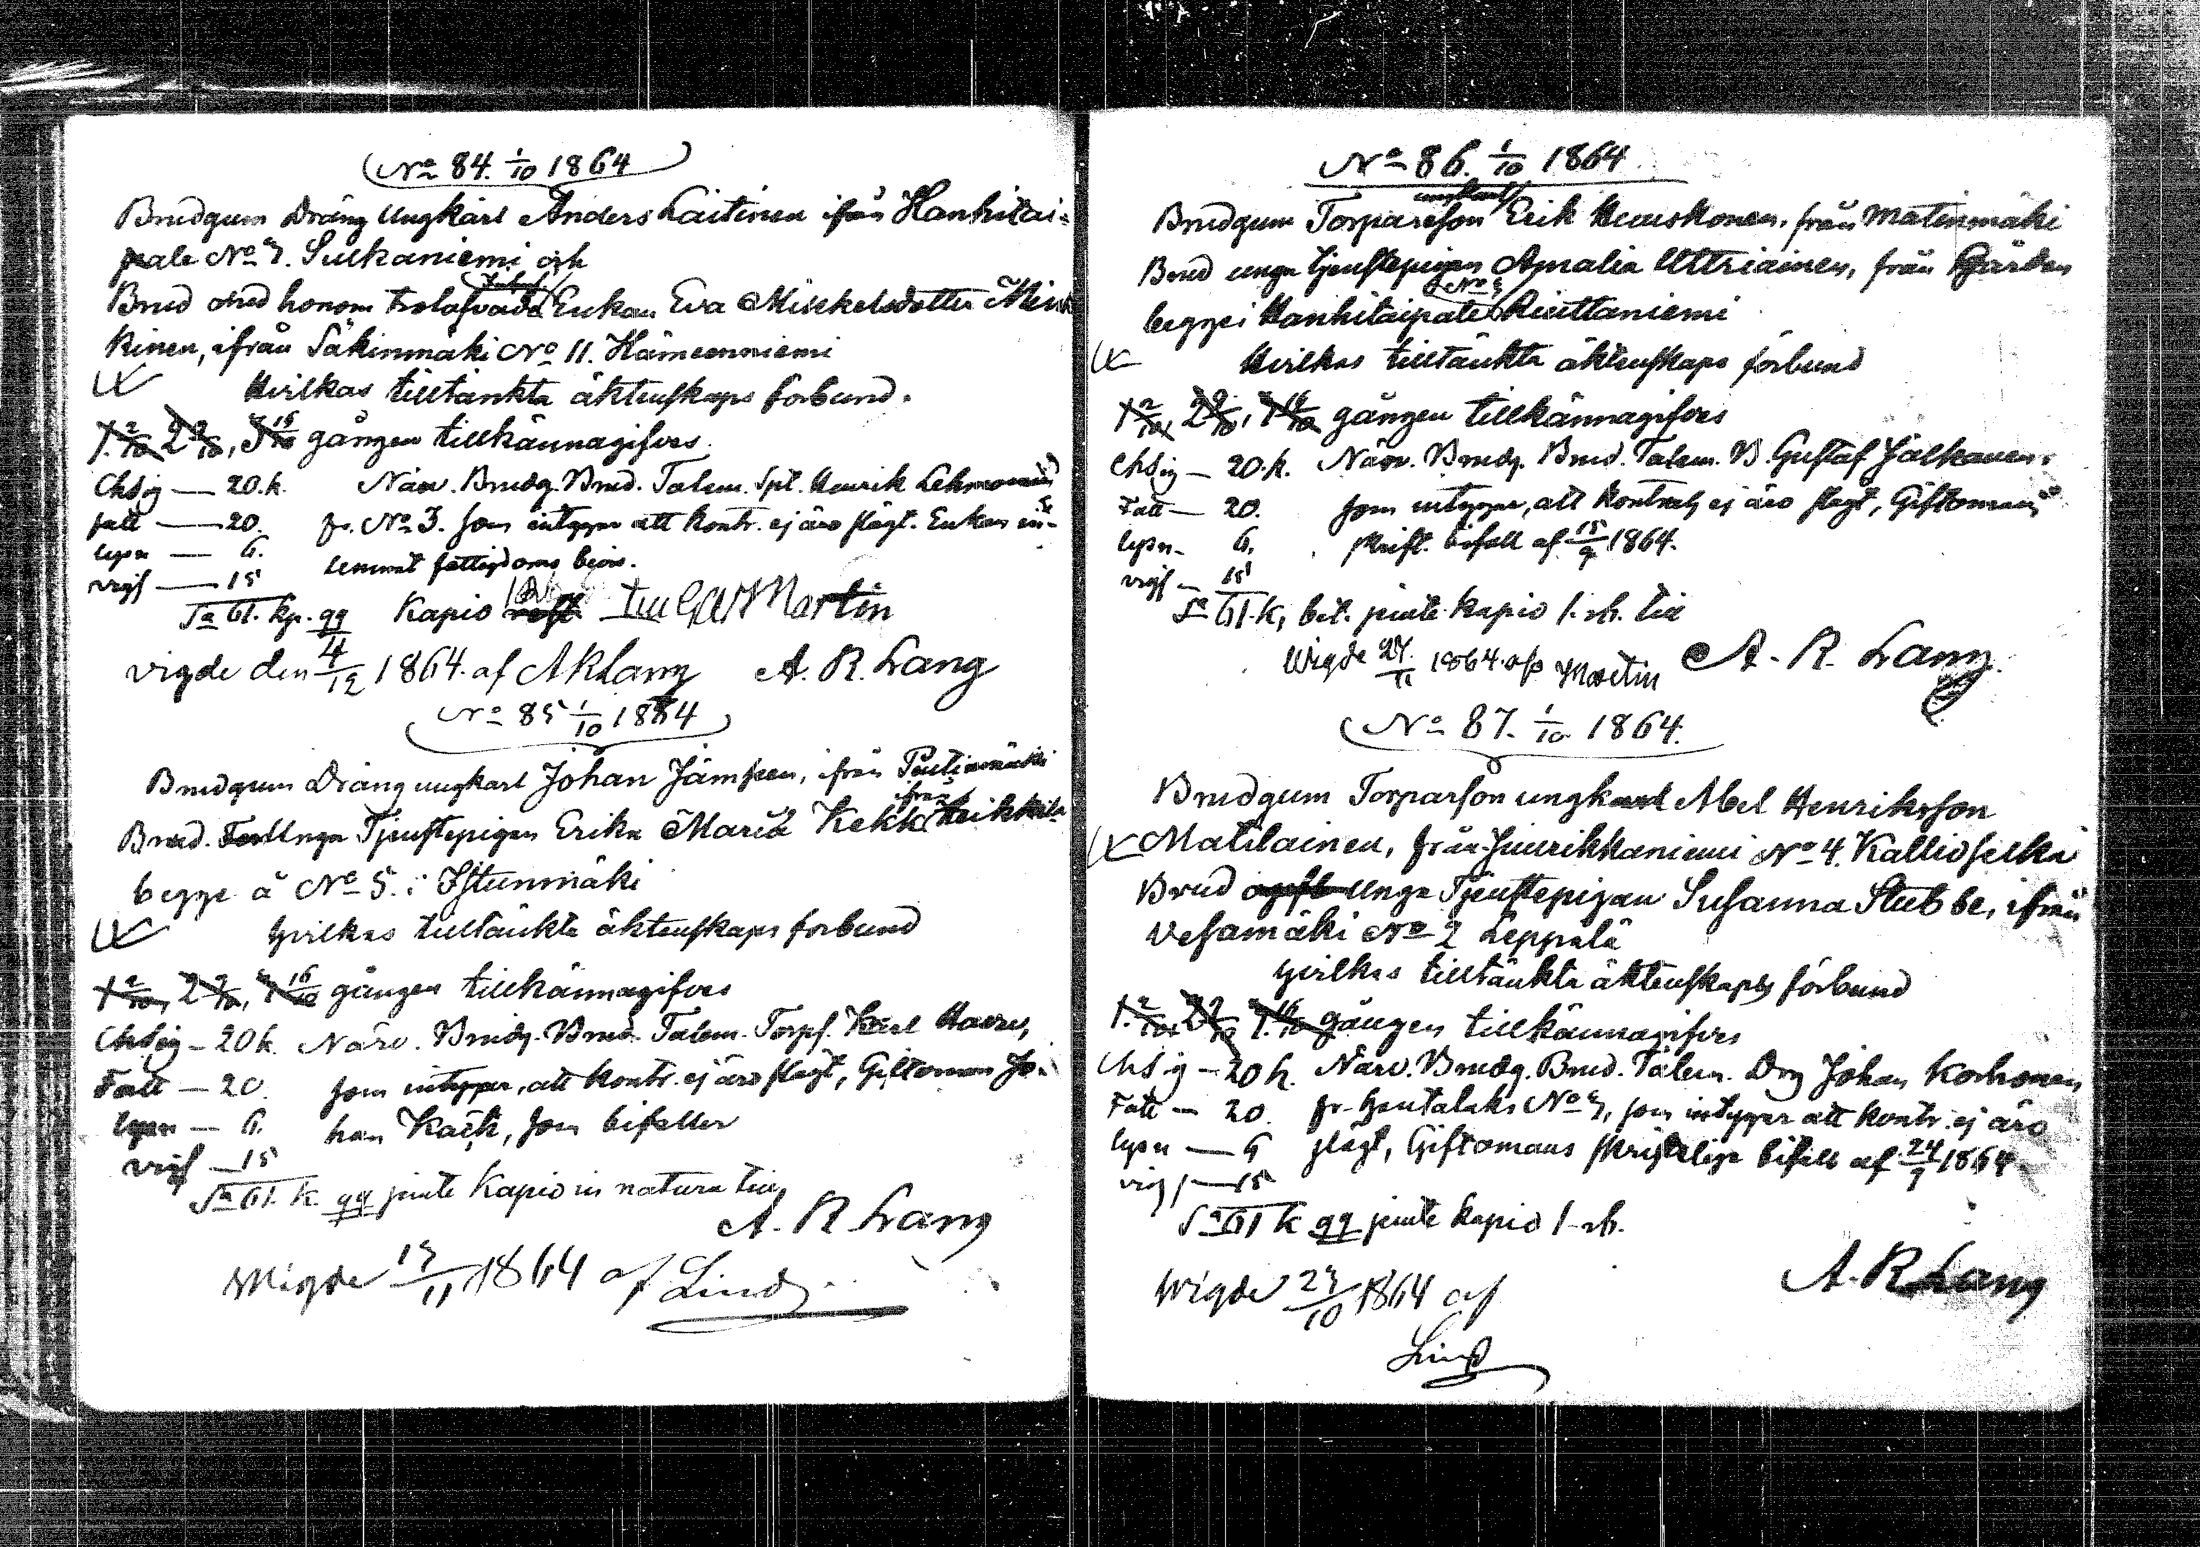 No 84. 1/10 1864
Brudgum Dräng Ungkarl Anders Laitinen ifrån Hankitai-
pale No 7. Sulkaniemi och
Brud med honom trolofvade Enkan Eva Mickelsdotter Min
kinen, ifrån Säkinmäki No 11. Hämeenniemi
Hvilkas tilltänkta äktenskaps förbund.
1. 2/10 2 9/10, 3 16/10 gången tillkännagifves.
Chsig — 20. k. Närv. Brudg. Brud. Talem. Spl. Henrik
fatt — 20. fr. No 3. som intygar att kontr. ej äro slägt. Enkan in-
lysn — 6. lemnat fattigdoms bevis.
vigs — 15
Sa 61. kp. gg Kapio till Martin
vigde den 4/12 1864. af A R Lang A. R. Lang
No 85 1/10 1864
Brudgum Dräng ungkarl Johan Jämsen, ifrån
ifrån
Brud. Unga Tjenstepigan Erika Maria Kekk
begge å No 5. i Istunmäki
Hvilkas tilltänkta äktenskaps förbund
1 2/10, 2 9/10, 16/10 gången tillkännagifves
Chsig — 20 k. Närv. Brudg. Brud. Talem. Torpf. Karl
Fatt — 20. som intygar, att kontr. ej äro slägt, Giftoman Jo-
lysn — 6. han Käck, som bifaller
vigs — 15
Sa 61. k. gg jemte Kapio in natura till
A. R. Lang
Wigde 17/11 1864 af Lind
No 86. 1/10 1864
Brudgum Torpareson Erik Heiskonen, från Matinmäki
Brud unga tjenstepigan Amalia Uttriainen, från Gården
begge i Hankitaipale No 7 Riuttaniemi
Hvilkas tilltänkta äktenskaps förbund
1 2/10, 2 9/10, 16/10 gången tillkännagifves
Chsig — 20. k. Närv. Brudg. Brud. Talem. B. Gustaf Jalkanen
Fatt — 20. som intygar, att kontrah ej äro slägt, Giftomans
lysn — 6. skrift. bifall af 15/9 1864.
vigs — 15
Sa 61. k, bet. jemte kapio 1. rb. till
Wigde 27/11 1864 af Martin A. R. Lang.
No 87. 1/10 1864.
Brudgum Torparson ungkarl Abel Henriksson
Matilainen, från Juurikkaniemi No 4. Kallioselkä
Brud Unga Tjenstepigan Susanna Stubbe, ifrån
Vesamäki No 2 Leppälä
Hvilkas tilltänkta äktenskaps förbund
1. 2/10, 2 9/10 16/10 gången tillkännagifves
Chsig — 20 k. Närv. Brudg. Brud. Talem. Drg Johan Korhonen
Fatt — 20. fr. No 7, som intygar att kontr. ej äro
lysn — 6 slägt, Giftomans skriftelige bifall af 24/9 1864
vigs — 15
Sa 61 k gg jemte kapio 1 rb.
A. R Lang
Wigde 27/10 1864 af
Lind